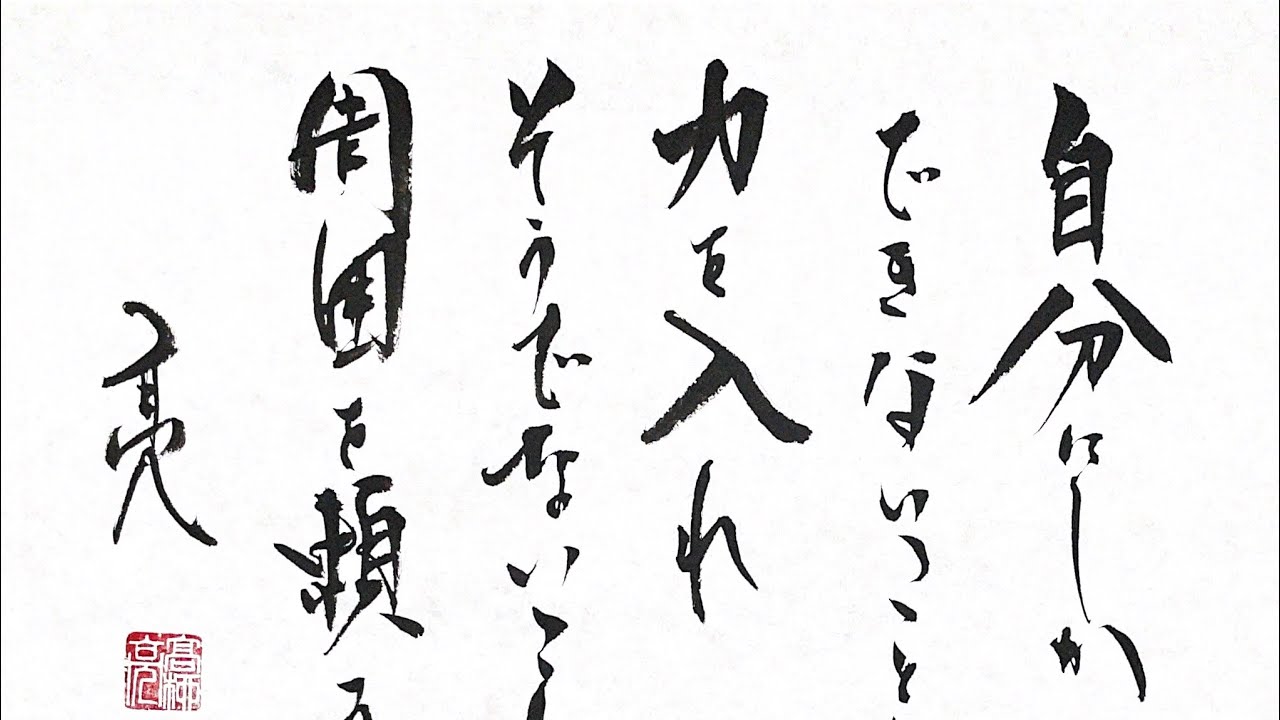 自分にしか
できないこと
力を入れ
そうでないこ
周囲を頼
亮